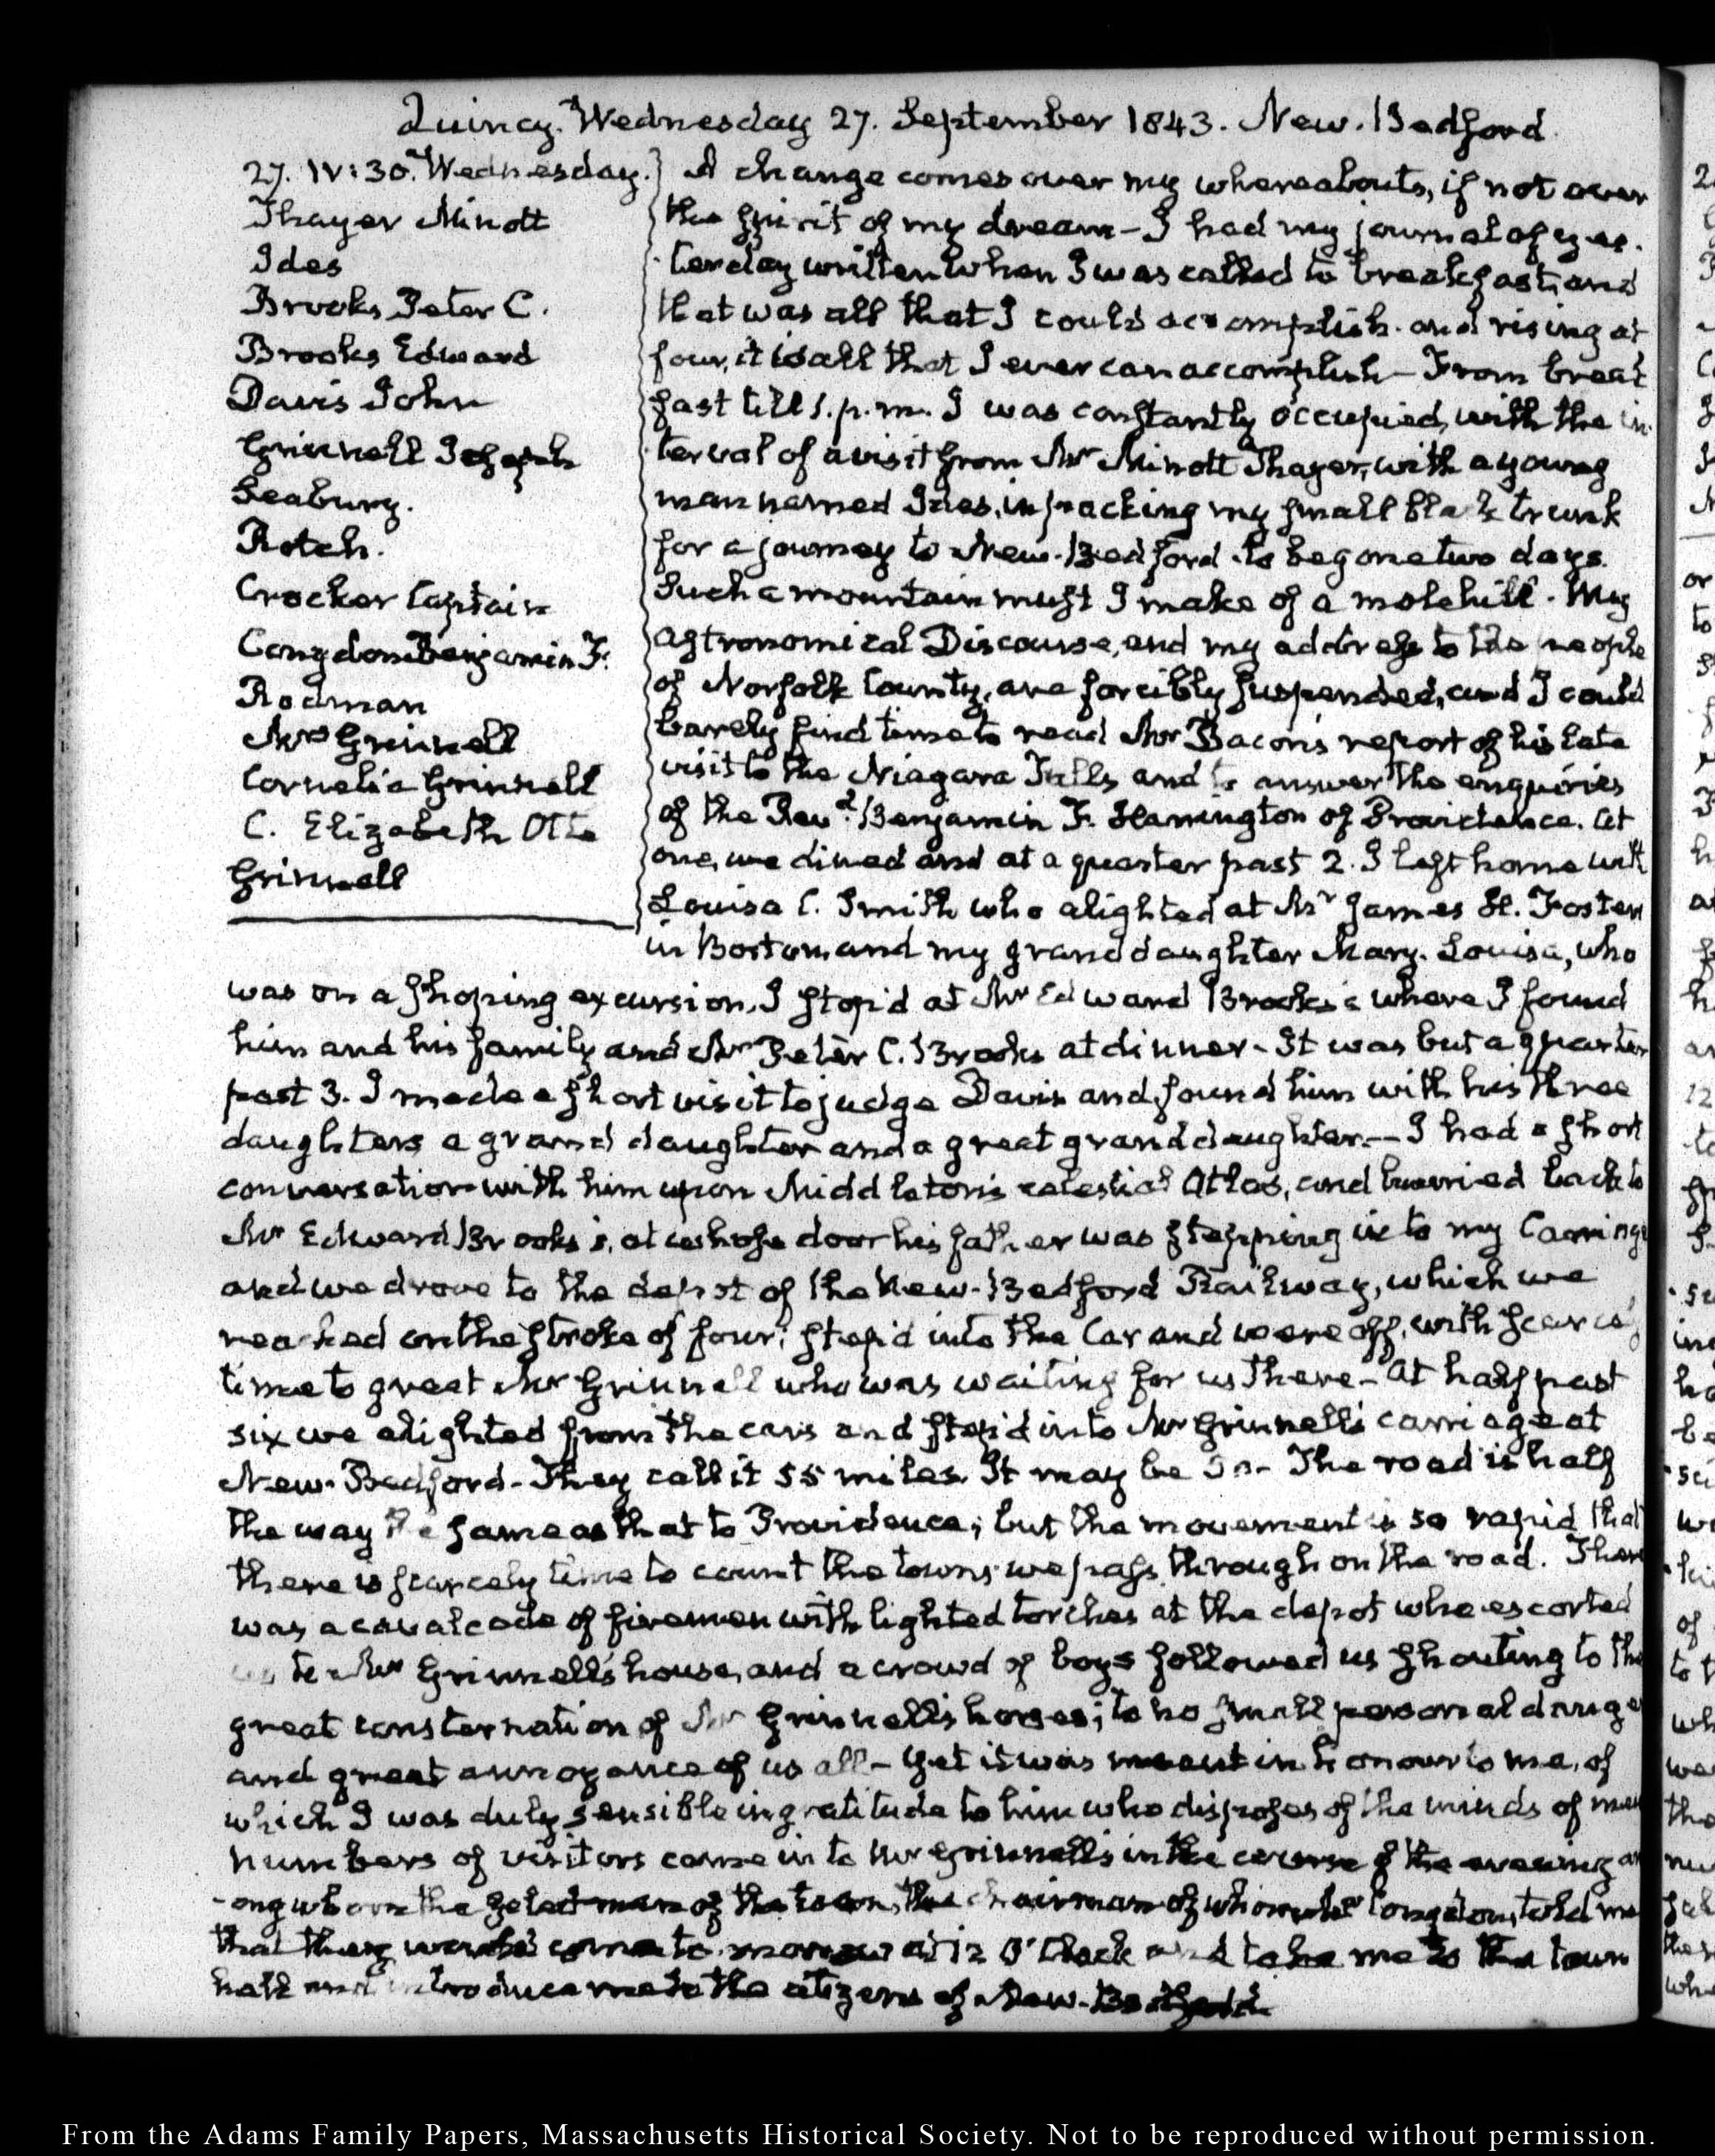 Quincy. Wednesday 27. September 1843. New-Bedford
27. IV:30. Wednesday.
Thayer Minott
Ides
Brooks Peter C.
Brooks Edward
Davis John
Grinnell Joseph
Seabury.
Rotch.
Crocker Captain
Congdon Benjamin F.
Rodman
Mrs Grinnell
Cornelia Grinnell
C. Elizabeth Otte
Grinnell
A change comes over my whereabouts, if not over
the spirit of my dream - I had my journal of yes-
terday written when I was called to breakfast, and
that was all that I could accomplish. and rising at
four, it is all that I ever can accomplish - From break
fast till 1. p.m. I was constantly occupied, with the in
terval of a visit from Mr Minott Thayer, with a young
man named Ides, in packing my small black trunk
for a journey to New-Bedford to be gone two days.
Such a mountain must I make of a molehill. My
astronomical Discourse, and my address to the people
of Norfolk County, are forcibly suspended, and I could
barely find time to read Mr Bacon's report of his late
visit to the Niagara Falls and to answer the enquiries
of the Revd. Benjamin F. of Providence. At
one, we dined and at a quarter past 2. I left home with
Louisa C. Smith who alighted at Mr James H. Foster
in Boston and my granddaughter Mary-Louisa, who
was on a shoping excursion. I stop'd at Mr Edward Brooks's where I found
him and his family and Mr Peter C. Brooks at dinner - It was but a quarter
past 3. I made a short visit to judge Davis and found him with his three
daughters a grand daughter and a great granddaughter. - I had a short
conversation with him upon Middleton's celestial Atlas, and hurried back to
Mr Edward Brooks's, at whose door his father was stepping in to my Carriage
and we drove to the depot of the New-Bedford Railway, which we
reached on the stroke of four; step'd into the Car and were off, with scarcely
time to greet Mr Grinnell who was waiting for us there - At half past
six we alighted from the cars and step'd into Mr Grinnell's carriage at
New-Bedford - They call it 55 miles. It may be so - The road is half
the way the same as that to Providence; but the movement is so rapid that
there is scarcely time to count the towns we pass through on the road. There
was a cavalcade of firemen with lighted torches at the depot who escorted
us to Mr Grinnell's house, and a crowd of boys followed us shouting to the
great consternation of Mr Grinnell's horses; to no small personal danger
and great annoyance of us all - Yet it was meant in honour to me, of
which I was duly sensible in gratitude to him who disposes of the minds of men
numbers of visitors came in to Mr Grinnell's in the course of the evening am
-ong whom the select-men of the town, the chairman of whom Mr Congdon, told me
that they would come to-morrow at 12 O'Clock and take me to the town
hall and introduce me to the citizens of New-Bedford.
From the Adams Family Papers, Massachusetts Historical Society. Not to be reproduced without permission.